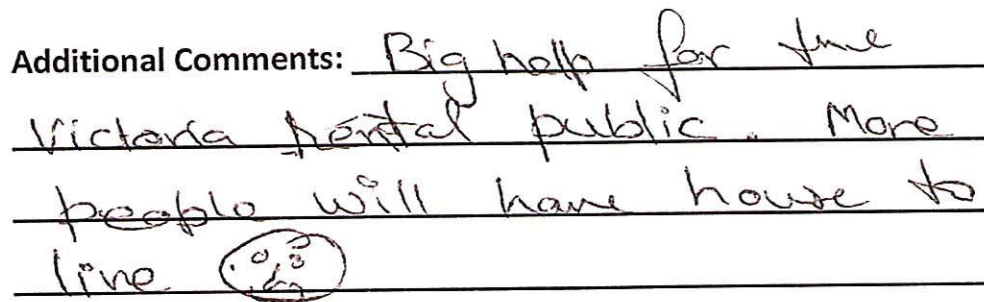 Additional Comments: Big help for the
Victoria rental public. More
people will have house to
live